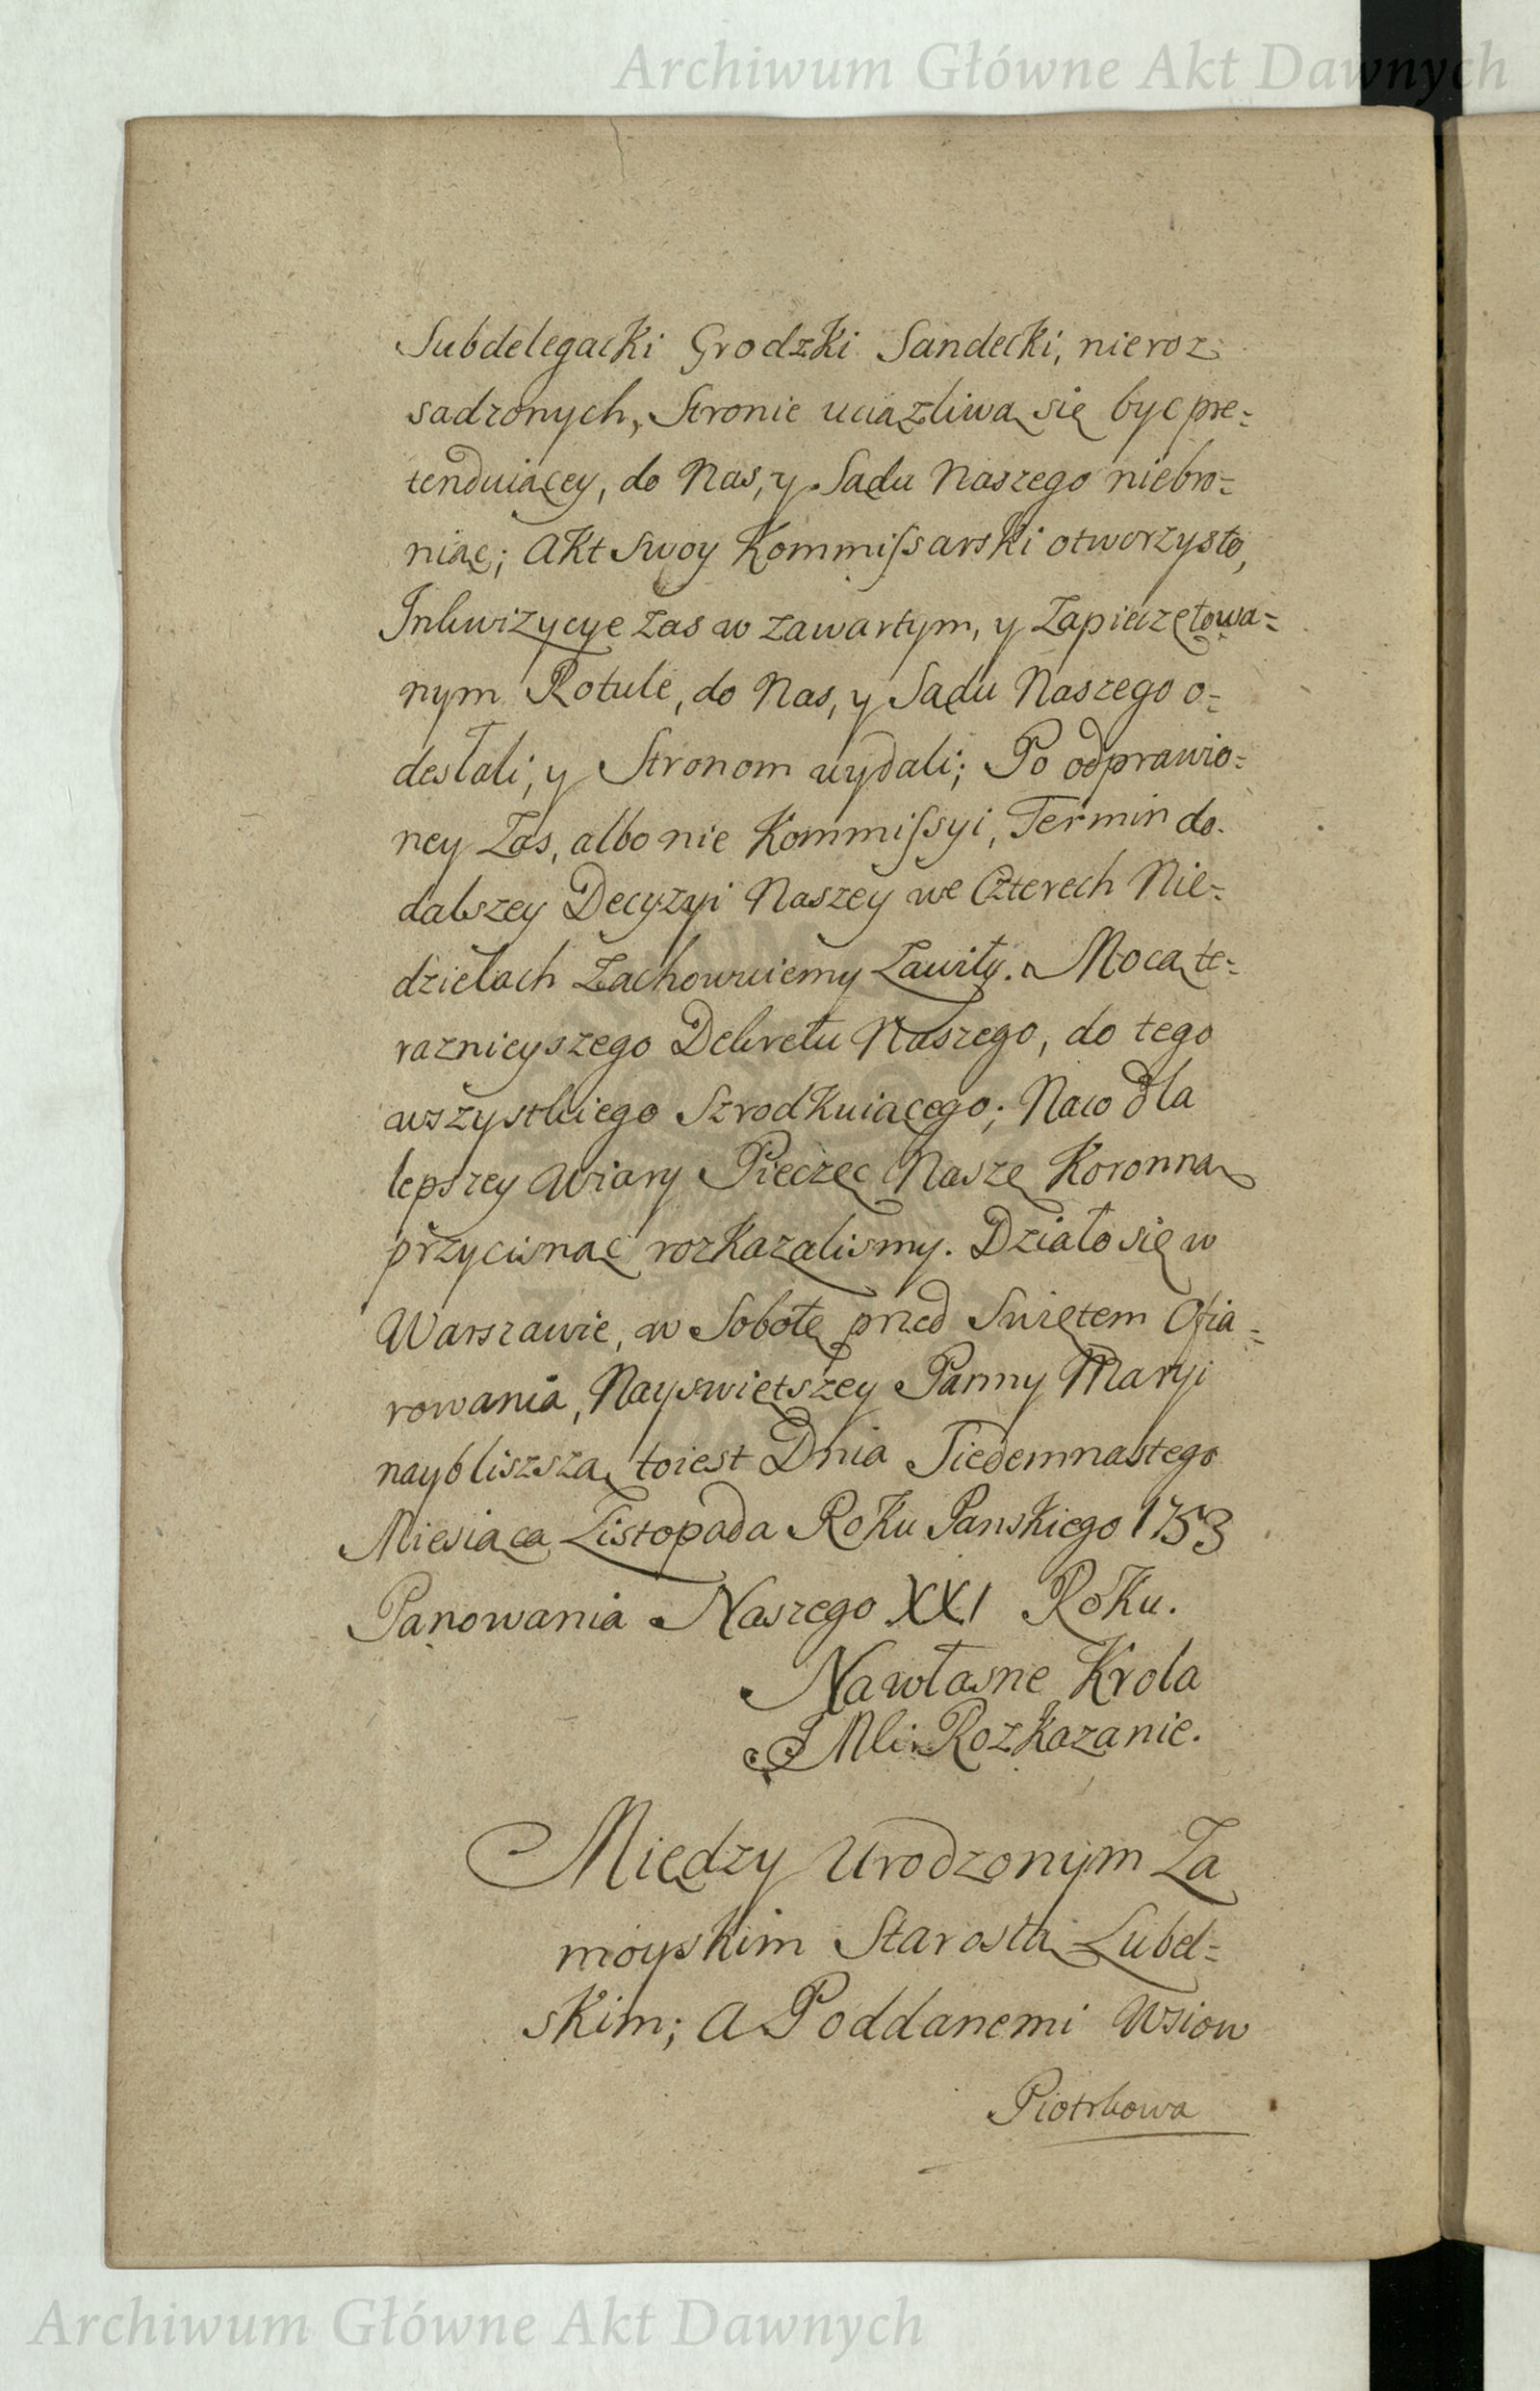 Archiwum Główne Akt Dawnych
Subdelegacki Grodzki Sandecki, nieroz:
sadzonych, Stronie uciązliwą się byc pre=
tenduiącey, do Nas, y Sądu Naszego niebro=
niąc; Akt Swoy Kommiſsarski otworzysto,
Inkwizycye zas w zawartym, y Zapieczętowa=
nym Rotule, do Nas, y Sądu Naszego o=
desłali, y Stronom wydali; Po odprawio=
ney Zas, albo nie Kommiſsyi, Termin do
dalszey Decyzyi Naszey we Czterech Nie=
dzielach Zachowuiemy Zawity. Mocą te=
raznieyszego Dekretu Naszego, do tego
wszystkiego Szrodkuiącego; Naco dla
lepszey Wiary Pieczęc Naszę Koronną
przycisnąc rozkazalismy. Działo się w
Warszawie, w Sobotę przed Swiętem Ofia=
rowania, Nayswiętszey Panny Maryi
naybliszszą, toiest Dnia Siedemnastego
Miesiąca Listopada Roku Panskiego 1753
Panowania Naszego XXI Roku.
Nawłasne Krola
JMci Rozkazanie.
Między Urodzonym Za
moyskim Starostą Lubel=
skim; A Poddanemi Wsiow
Piotrkowa
Archiwum Główne Akt Dawnych